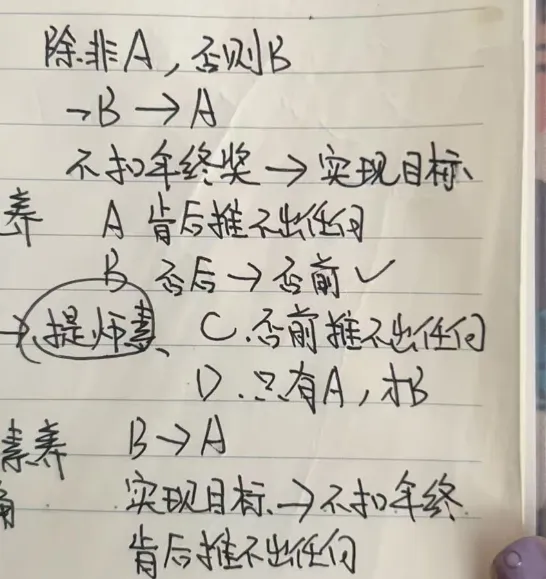 除非A，否则B
¬B→A
不扣年终奖→实现目标
养 A 肯后推不出任何
B 否后→否前✓
→提师素、 C.否前推不出任何
D.只有A，才B
素养 B→A
实现目标→不扣年终
肯后推不出任何